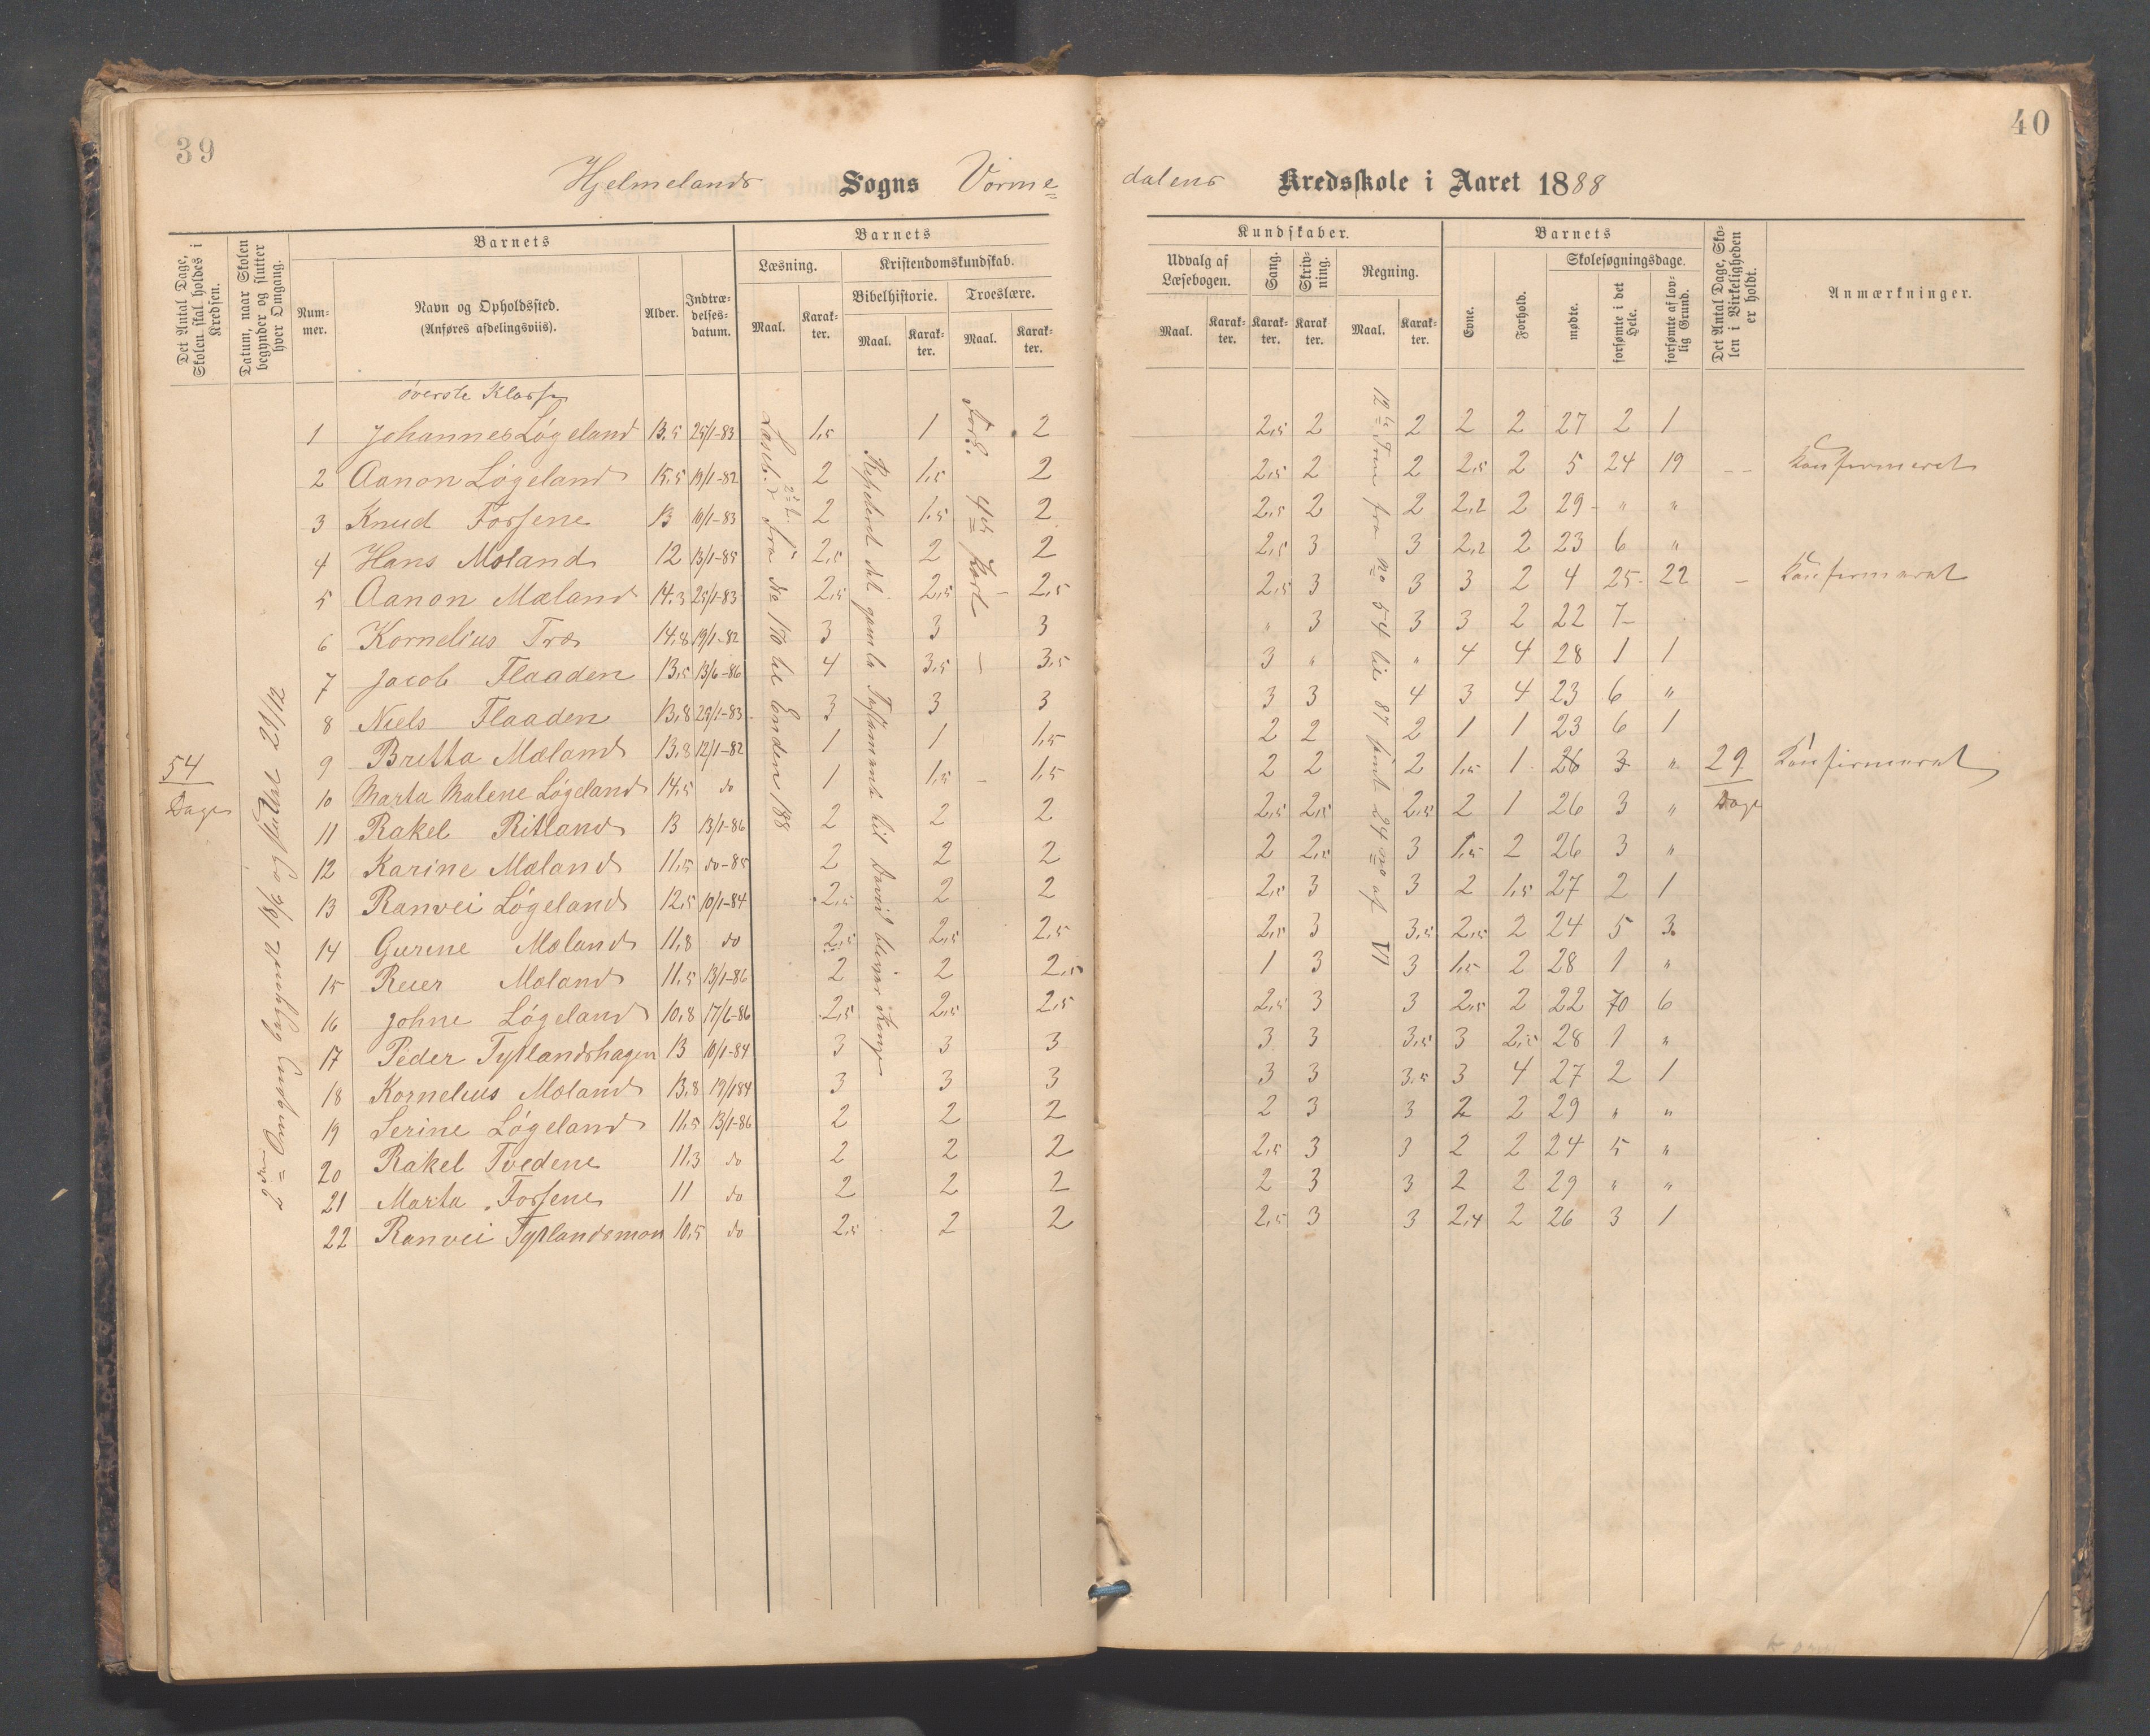 39
40
Hjelmelands Sogns Vorme=
dalens Kredsskole i Aaret 1888
Det Antal Dage, Skolen skal holdes i Kredsen.
Datum, naar Skolen begynder og slutter hver Omgang.
Barnets
Nummer.
Navn og Opholdssted.
(Anføres afdelingsviis).
Alder.
Indtrædelsesdatum.
Barnets
Læsning.
Maal.
Karakter.
Kristendomskundskab.
Bibelhistorie.
Maal.
Karakter.
Troeslære.
Maal.
Karakter.
Kundskaber.
Udvalg af Læsebogen.
Maal.
Karakter.
Sang.
Karakter.
Skrivning.
Karakter.
Regning.
Maal.
Karakter.
Barnets
Evne.
Forhold.
Skolesøgningsdage.
mødte.
forsømte i det Hele.
forsømte af lovlig Grund.
Det Antal Dage, Skolen i Virkeligheden er holdt.
Anmærkninger.
54
Dage
2den Omgang begyndt 18/6 og sluttet 21/12
øverste Klasse
1 Johannes Løgeland 13.5 25/1-83 1,5 1 2 2,5 2 2 2 2 27 2 1
2 Aanon Løgeland 15.5 19/1-82 2 1,5 2 2,5 2 2 2,5 2 5 24 19 Konfirmeret
3 Knud Fossene 13 10/1-83 2 1,5 2 2,5 2 2 2,2 2 29 " "
4 Hans Mæland 12 13/1-85 2,5 2 2 2,5 3 3 2,2 2 23 6 "
5 Aanon Mæland 14.3 25/1-83 2,5 2,5 2,5 2,5 3 3 3 2 4 25 22 Konfirmeret
6 Kornelius Træ 14.8 19/1-82 3 3 3 " 3 3 3 2 22 7
7 Jacob Flaaden 13,5 13/6-86 4 3,5 3,5 3 " " 4 4 28 1 1
8 Niels Flaaden 13,8 25/1-83 3 3 3 3 3 4 3 4 23 6 "
9 Britha Mæland 13.8 12/1-82 1 1 1,5 2 2 2 1 1 23 6 1
10 Marta Malene Løgeland 14,5 do 1 1,5 1,5 2 2 2 1,5 1 26 3 " Konfirmeret
11 Rakel Ritland 13 13/1-86 2 2 2 2,5 2,5 2,5 2 1 26 3 "
12 Karine Mæland 11,5 do-85 2 2 2 2 2,5 3 1,5 2 26 3 "
13 Ranvei Løgeland 12,5 10/1-84 2,5 2 2 2,5 3 3 2 1,5 27 2 1
14 Gurine Mæland 11,8 do 2,5 2,5 2,5 2,5 3 3,5 2,5 2 24 5 3
15 Reier Mæland 11,5 13/1-86 2 2 2,5 1 3 3 1,5 2 28 1 "
16 Johne Løgeland 10,8 17/6-86 2,5 2,5 2,5 2,5 3 3 2,5 2 22 70 6
17 Peder Tytlandshagen 13 10/1-84 3 3 3 3 3 3,5 3 2,5 28 1 "
18 Kornelius Mæland 13,8 19/1 84 3 3 3 3 3 3,5 3 4 27 2 1
19 Serine Løgeland 11,5 13/1-86 2 2 2 2 3 3 2 2 29 " "
20 Rakel Tvedene 11,3 do 2 2 2 2,5 3 3 2 2 24 5 "
21 Marta Fossene 11 do 2 2 2 2 3 3 2 2 29 " "
22 Ranvei Tytlandsmoen 10,5 do 2,5 2 2 2,5 3 3 2,4 2 26 3 1
fra do 170 til Enden 188
Repeteret det gamle Testamente til David bliver Konge
Forkl. 4de Part
12te Trin fra no 54 til 87 samt 24 no af VI
29
Dage